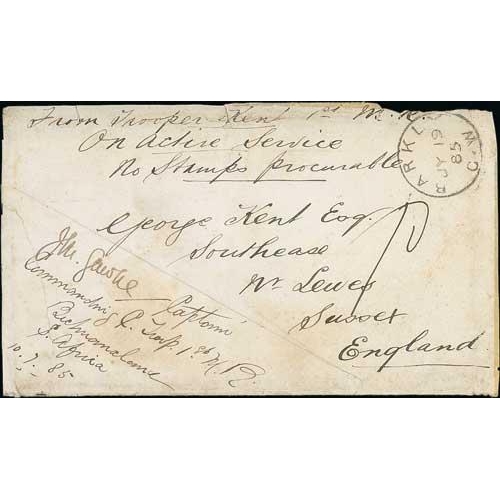 From Trooper Kent 1st M. R.
On Active Service
No Stamps procurable
BARKLY
B
JY 19
85
G.W.
George Kent Esq.
Southease
Nr Lewes
Sussex
England
Captain
Commanding C. Troop 1st M.R.
Bechuanaland
S. Africa
10.7.85